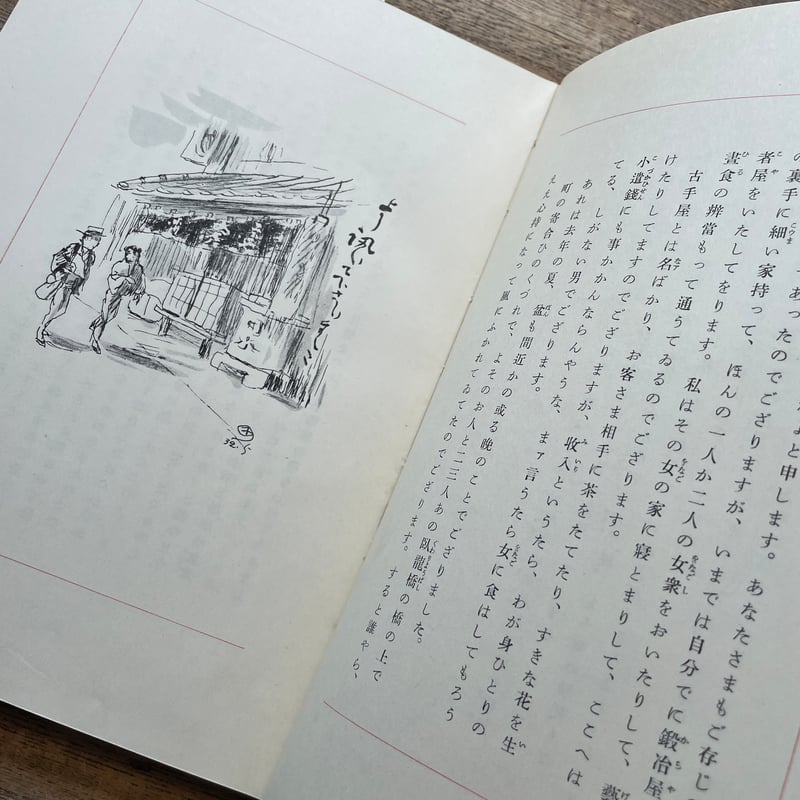 よと申します。あなたさまもご存じ
あったのでござりますが、いまでは自分でに鍛冶屋
の裏手に細い家持って、ほんの一人か二人の女衆をおいたりして、藝
者屋をいたしてをります。私はその女の家に寢とまりして、ここへは
晝食の辨當もって通うてゐるのでござります。
古手屋とは名ばかり、お客さま相手に茶をたてたり、すきな花を生
けたりしてますのでござりますが、收入というたら、わが身ひとりの
小遣錢にも事かかんならんやうな、まァ言うたら女に食はしてもろう
てる、しがない男でござります。
あれは去年の夏、盆も間近かの或る晩のことでござりました。
町の寄合ひのくづれで、よそのお人と二三人あの臥龍橋の橋の上で
ええ心持になって風にふかれてゐてたのでござります。すると誰やら、